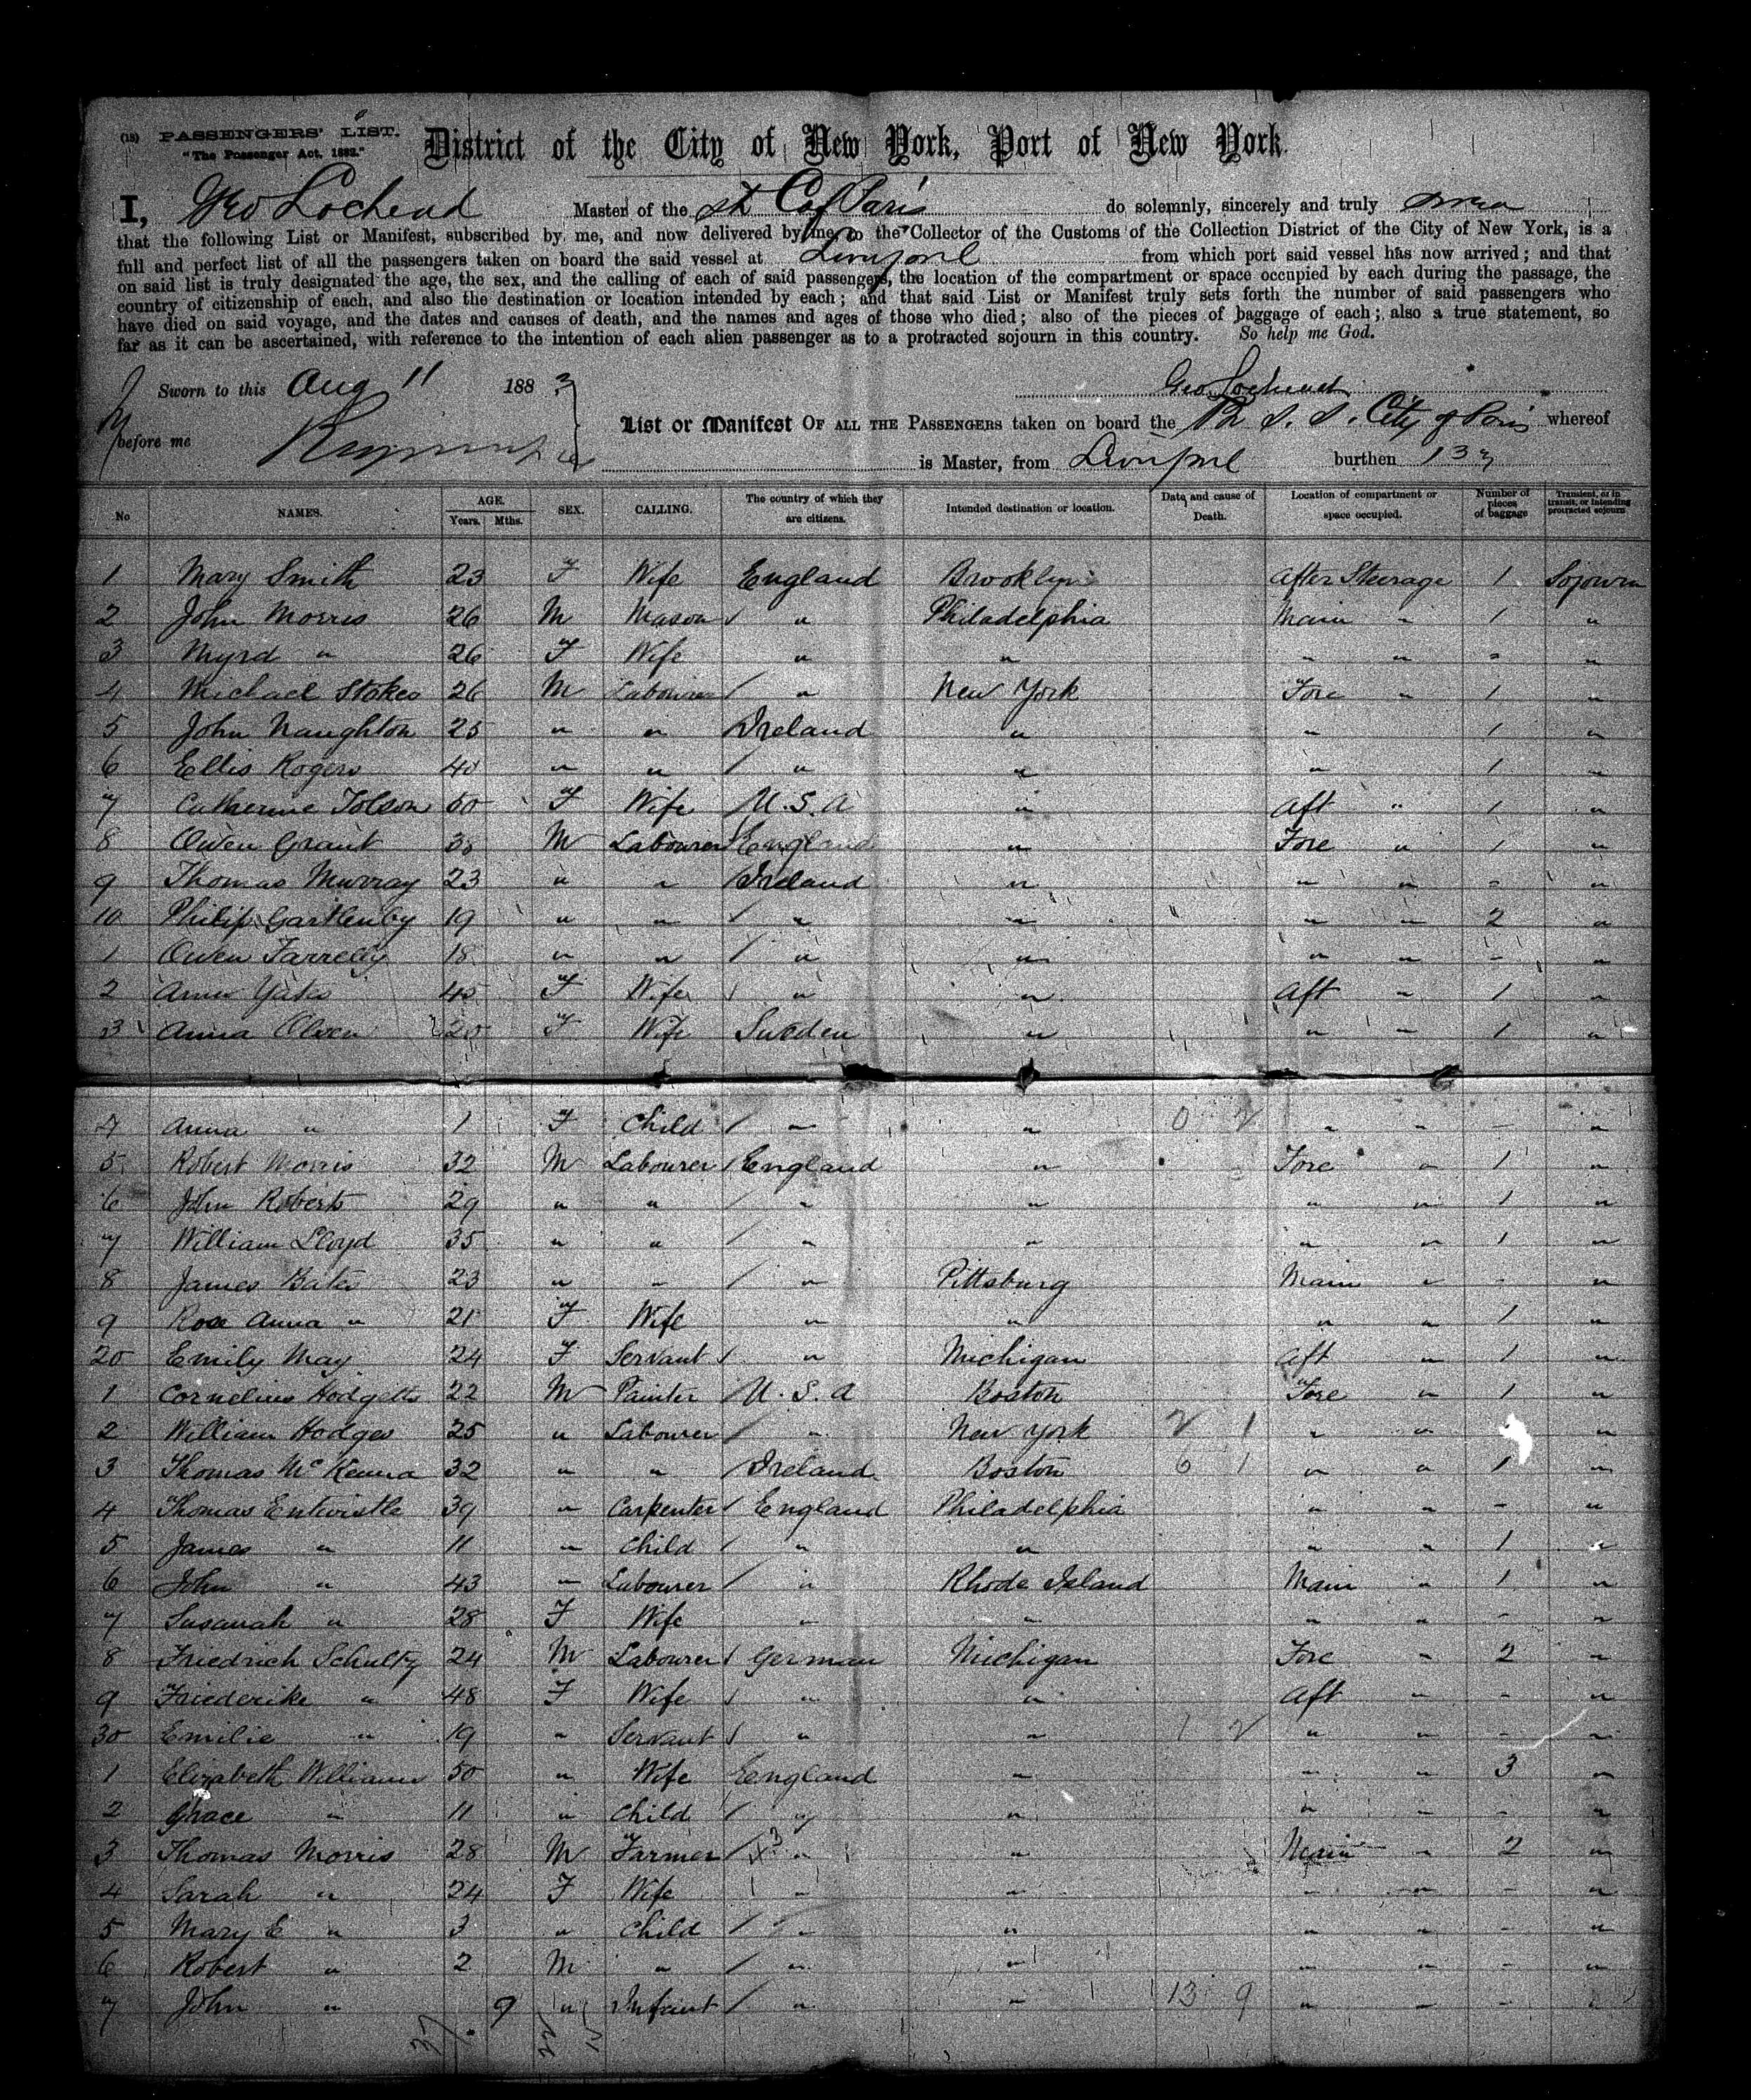 (18) PASSENGERS' LIST.
"The Passenger Act, 1882."
District of the City of New York, Port of New York.
I, Geo Lochead Master of the SS C of Paris do solemnly, sincerely and truly swear
that the following List or Manifest, subscribed by me, and now delivered by me to the Collector of the Customs of the Collection District of the City of New York, is a
full and perfect list of all the passengers taken on board the said vessel at Liverpool from which port said vessel has now arrived; and that
on said list is truly designated the age, the sex, and the calling of each of said passengers, the location of the compartment or space occupied by each during the passage, the
country of citizenship of each, and also the destination or location intended by each; and that said List or Manifest truly sets forth the number of said passengers who
have died on said voyage, and the dates and causes of death, and the names and ages of those who died; also of the pieces of baggage of each; also a true statement, so
far as it can be ascertained, with reference to the intention of each alien passenger as to a protracted sojourn in this country. So help me God.
Sworn to this Aug 11 1883
Geo Lochead
before me
List or Manifest OF ALL THE PASSENGERS taken on board the S. S. City of Paris whereof
is Master, from Liverpool burthen
No NAMES. AGE. Years. Mths. SEX. CALLING. The country of which they are citizens. Intended destination or location. Date and cause of Death. Location of compartment or space occupied. Number of pieces of baggage Transient, or in transit, or intending protracted sojourn
1 Mary Smith 23 F Wife England Brooklyn After Steerage 1 Sojourn
2 John Morris 26 M Mason / " Philadelphia Main " 1 "
3 " 26 F Wife " " " " " "
4 Michael Stokes 26 M Labourer / " New York Fore " 1 "
5 John Naughton 25 " " Ireland " " 1 "
6 Ellis Rogers 40 " " / " " " 1 "
7 Catherine Tolson 50 F Wife U.S.A " Aft " 1 "
8 Owen Grant 38 M Labourer England " Fore " 1 "
9 Thomas Murray 23 " " Ireland " " " - "
10 Philip 19 " " / " " " " 2 "
1 Owen Farrelly 18 " " / " " " " - "
2 Yates 45 F Wife / " " Aft " 1 "
3 Anna Olsen 20 F Wife Sweden " " " 1 "
4 Anna " 1 F Child / " " 0 2 " " - "
5 Robert Morris 32 M Labourer / England " Fore " 1 "
6 John Roberts 29 " " / " " " " 1 "
7 William Lloyd 35 " " / " " " " 1 "
8 James Bates 23 " " / " Pittsburg Main " - "
9 Rose Anna " 21 F Wife " " " " 1 "
20 Emily May 24 F Servant / " Michigan Aft " 1 "
1 Cornelius Hodgetts 22 M Painter U.S.A Boston Fore " 1 "
2 William Hodges 25 " Labourer / " New York 2 1 " " "
3 Thomas McKenna 32 " " / Ireland Boston 6 1 " " 1 "
4 Thomas Entwistle 39 " Carpenter / England Philadelphia " " - "
5 James " 11 " Child / " " " " 1 "
6 John " 43 " Labourer / " Rhode Island Main " 1 "
7 Susanah " 28 F Wife " " " " - "
8 Friedrich Schultz 24 M Labourer / German Michigan Fore " 2 "
9 Friederike " 48 F Wife " " Aft " - "
30 Emilie " 19 " Servant / " " 1 2 " " - "
1 Elizabeth Williams 50 " Wife England " " " 3 "
2 Grace " 11 " Child / " " " " - "
3 Thomas Morris 28 M Farmer / " " Main " 2 "
4 Sarah " 24 F Wife " " " " - "
5 Mary E " 3 " Child / " " " " - "
6 Robert " 2 M " / " " " " - "
7 John " 9 " Infant / " " 13 9 " " - "